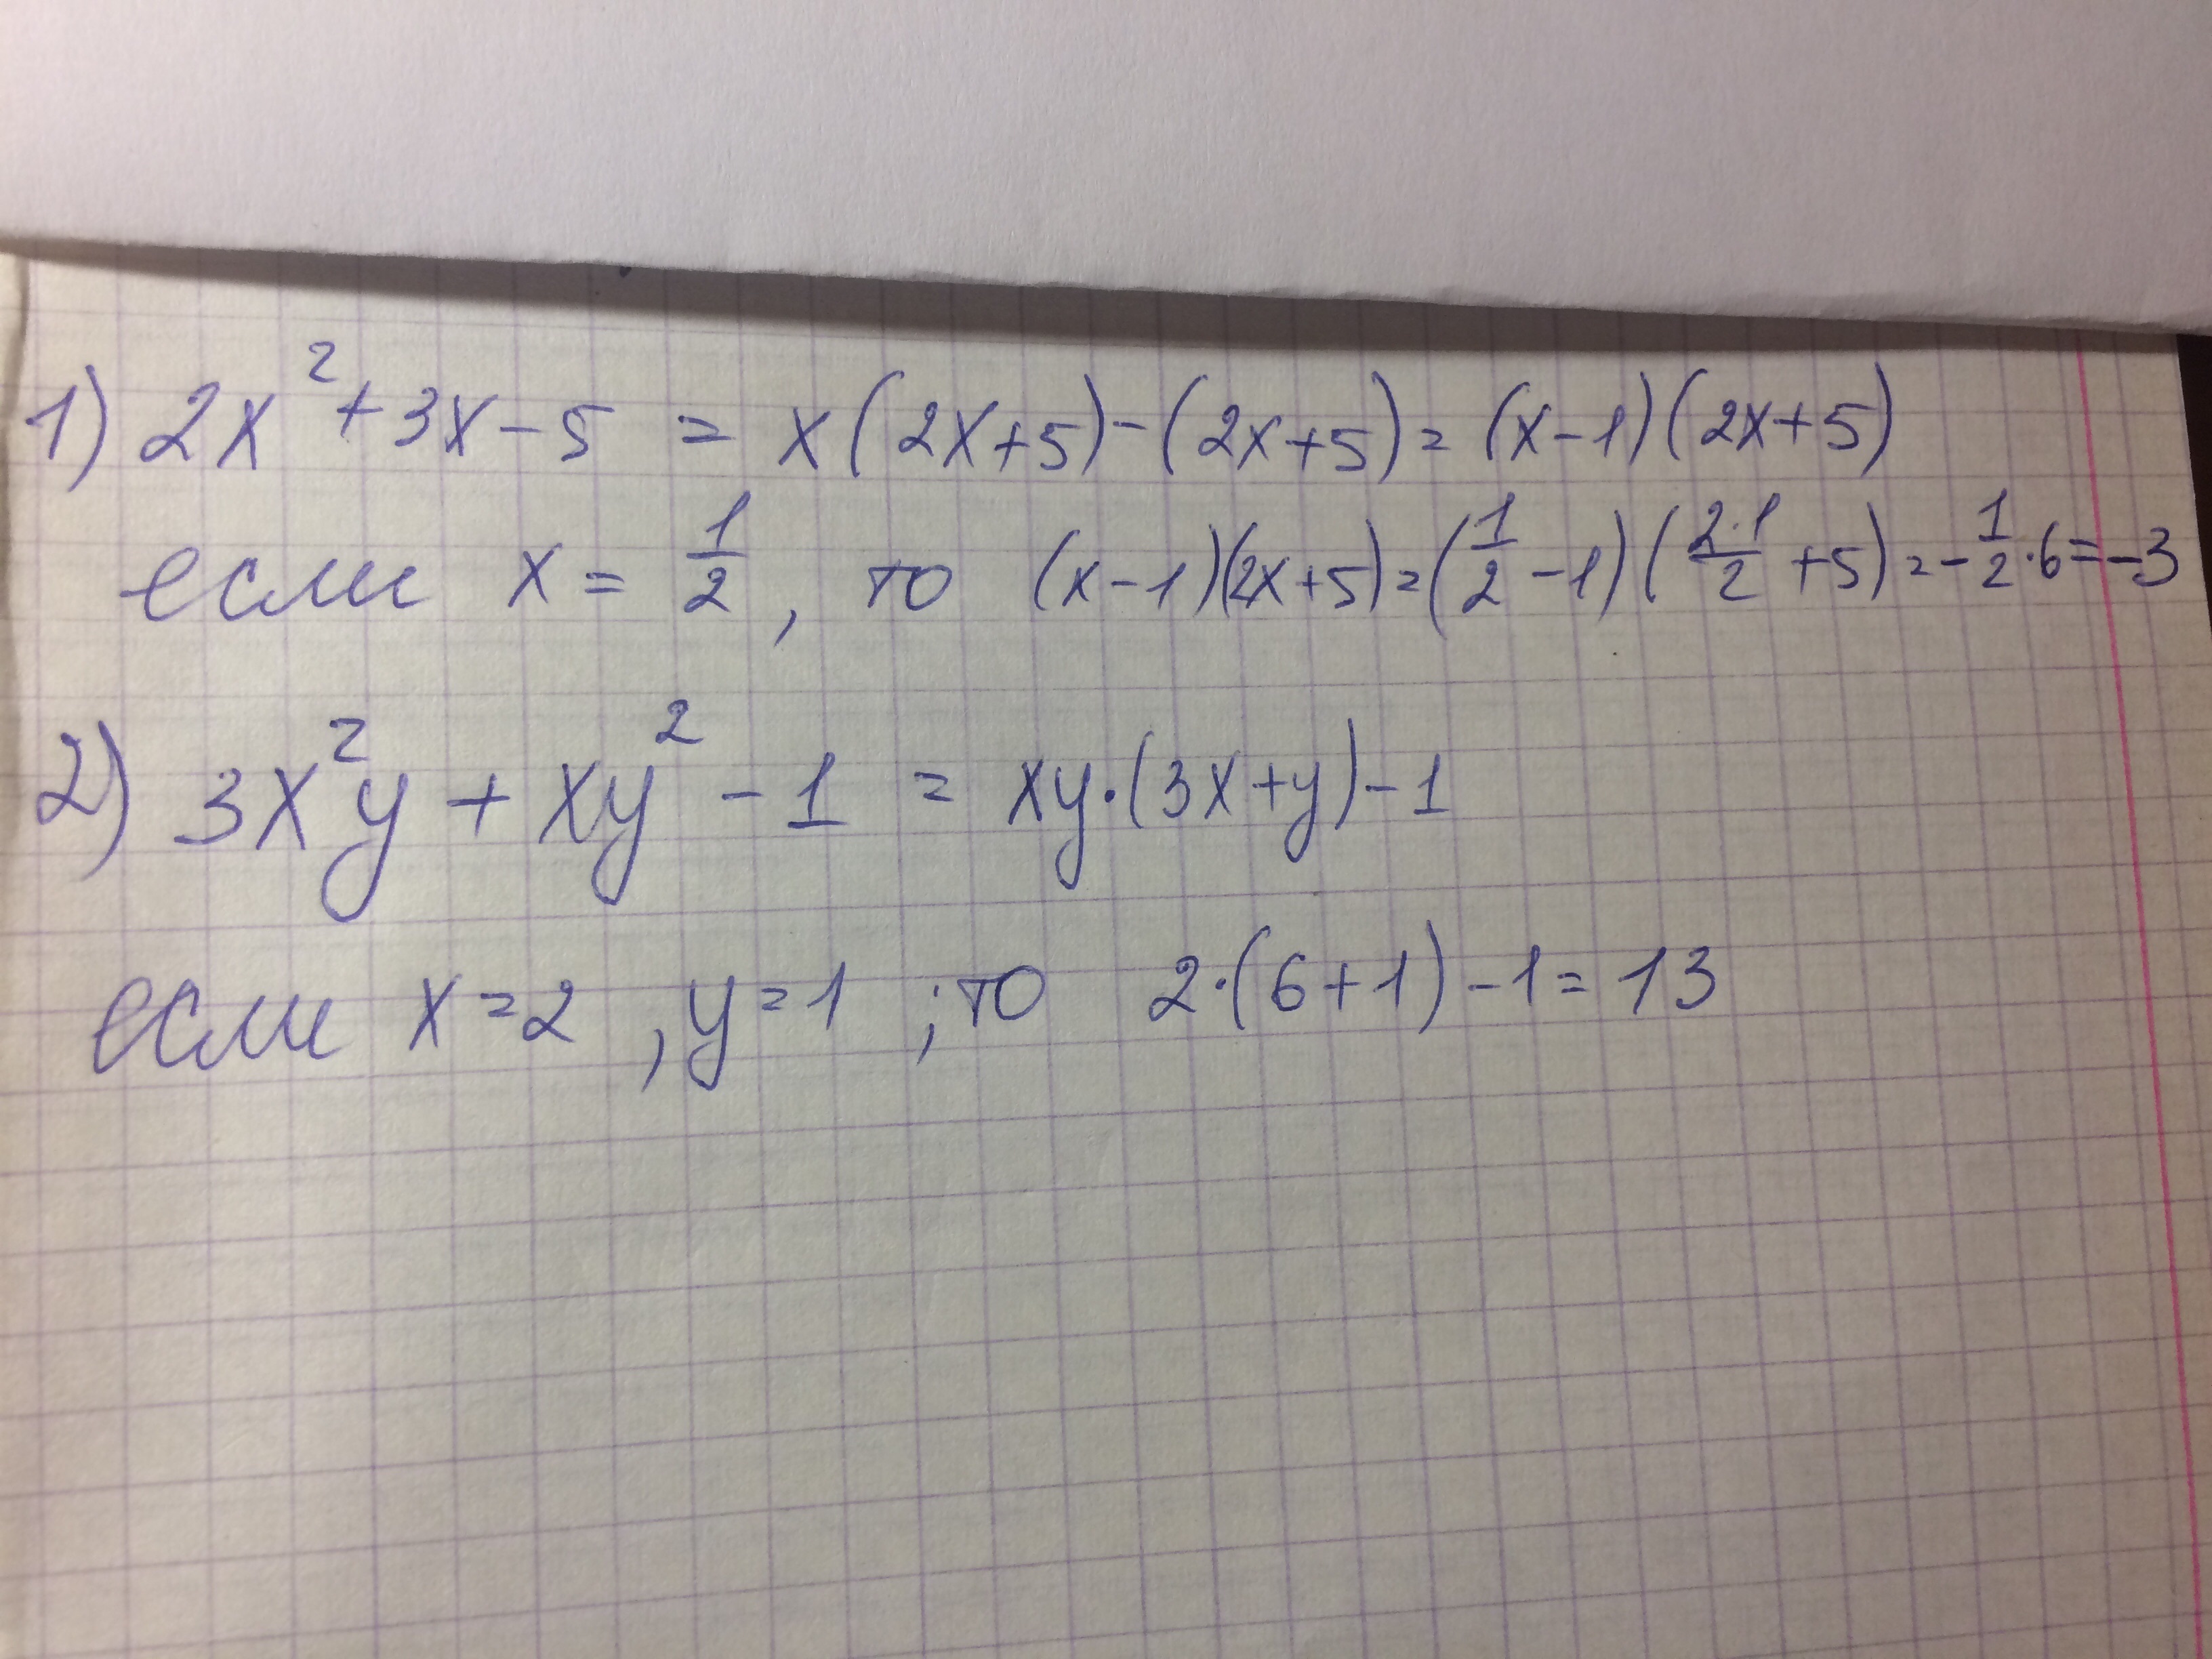 1) 2x² + 3x - 5 = x(2x+5) - (2x+5) = (x-1)(2x+5)
если x = 1/2, то (x-1)(2x+5) = (1/2 - 1)(2·1/2 + 5) = -1/2·6 = -3
2) 3x²y + xy² - 1 = xy·(3x+y) - 1
если x=2, y=1; то 2·(6+1) - 1 = 13